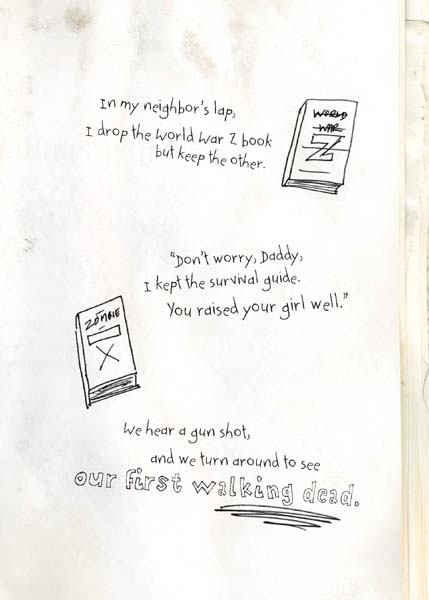 In my neighbor's lap,
I drop the World War Z book
but keep the other.
WORLD
WAR
Z
"Don't worry, Daddy,
I kept the survival guide.
You raised your girl well."
ZOMBIE
X
We hear a gun shot,
and we turn around to see
our first walking dead.